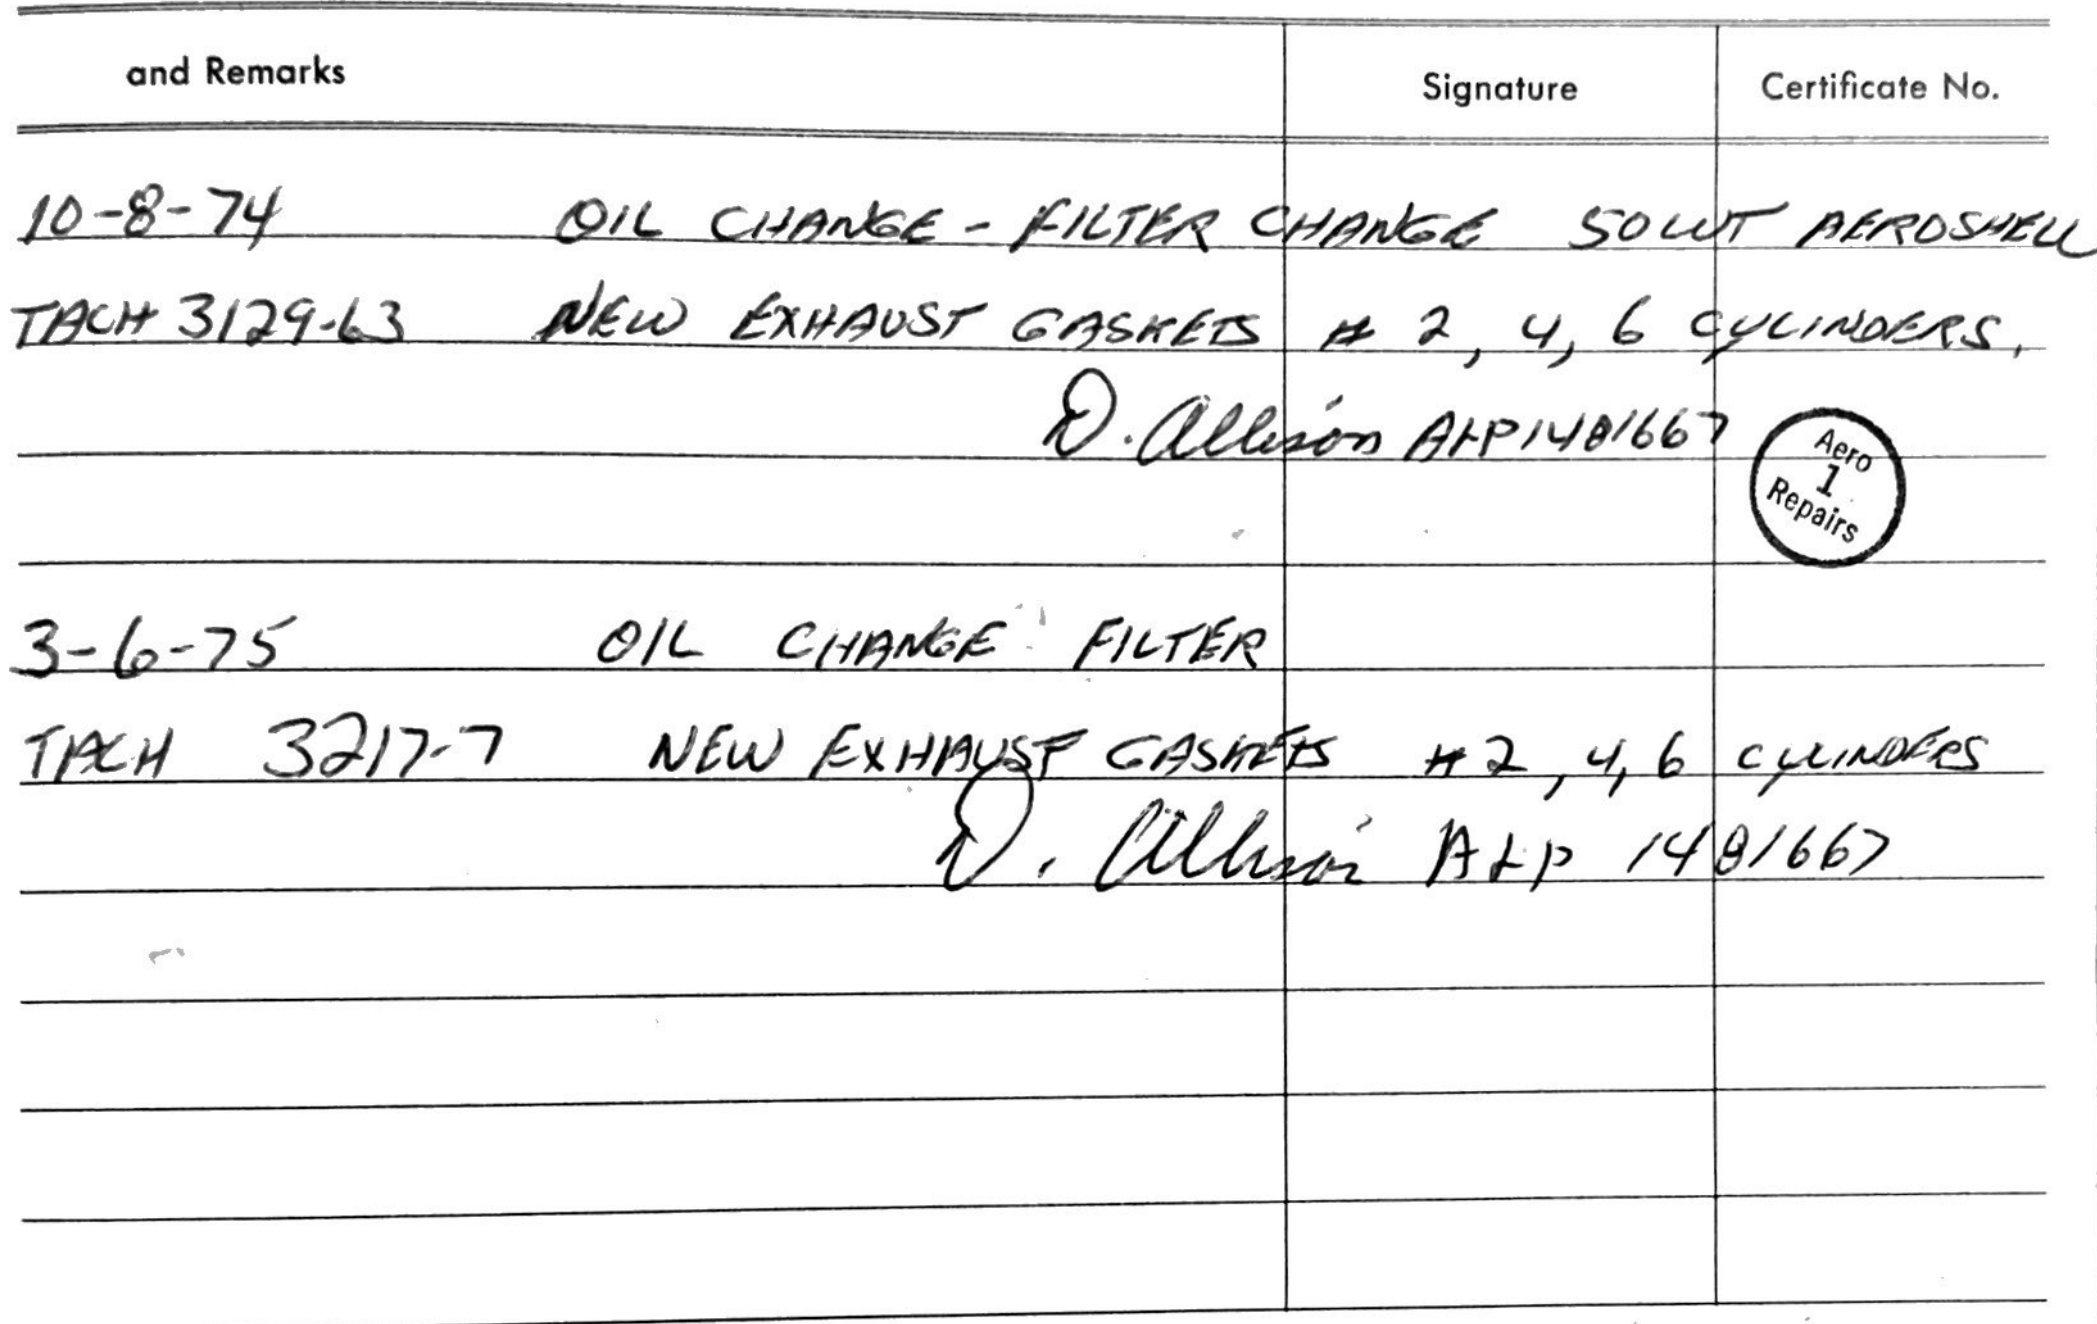 and Remarks Signature Certificate No.
10-8-74 OIL CHANGE - FILTER CHANGE 50WT AEROSHELL
TACH 3129.63 NEW EXHAUST GASKETS # 2, 4, 6 CYLINDERS.
D. Allison A&P 1481667
Aero
1
Repairs
3-6-75 OIL CHANGE FILTER
TACH 3217.7 NEW EXHAUST GASKETS #2, 4, 6 CYLINDERS
D. Allison A&P 1481667